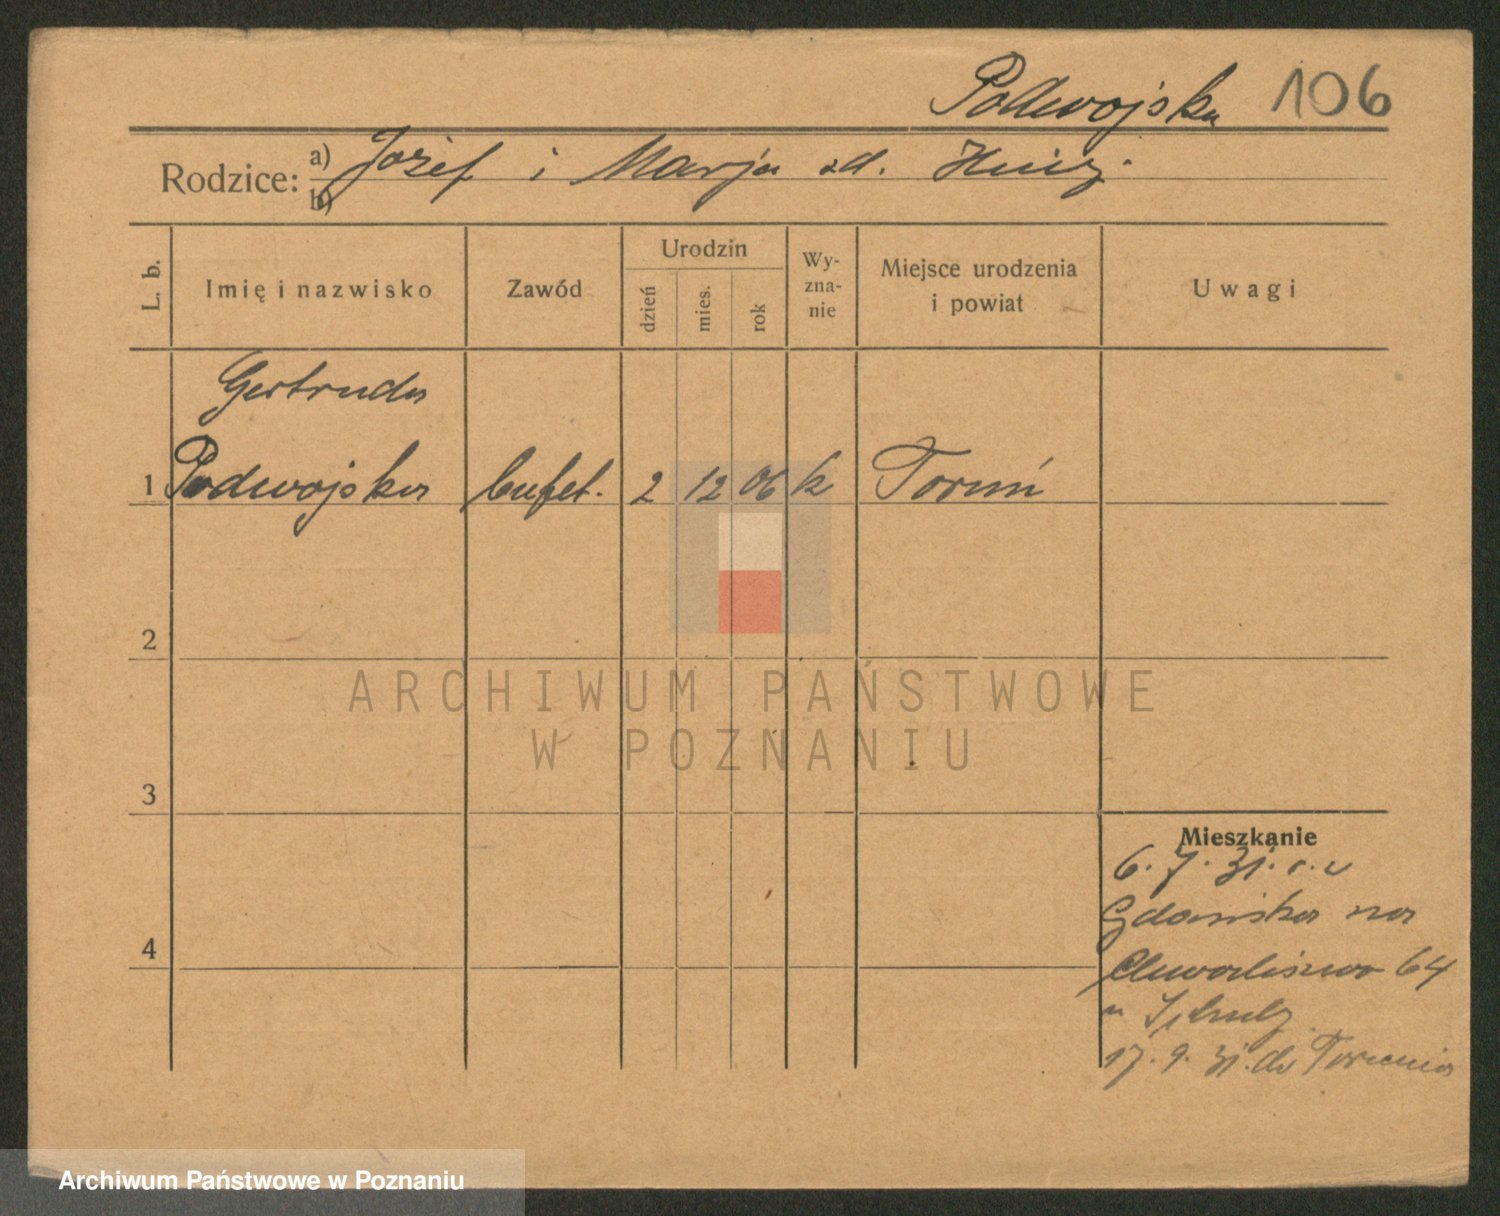 Podwojska 106
Rodzice: a) Józef i Marja zd.
b)
L. b. Imię i nazwisko Zawód Urodzin dzień mies. rok Wyzna-nie Miejsce urodzenia i powiat Uwagi
Gertruda
1 Podwojska bufet. 2 12 06 k Toruń
2
ARCHIWUM PAŃSTWOWE
W POZNANIU
3
Mieszkanie
6. 7. 31.
Gdańska na
4
Chwaliszewo 64
u Schulz
17. 9. 31. do Torunia
Archiwum Państwowe w Poznaniu